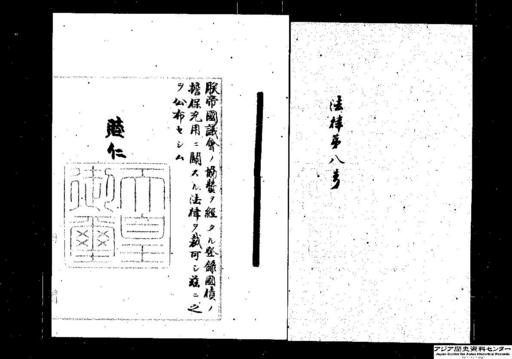 法律第八号
朕帝國議會ノ協賛ヲ經タル登録國債ノ
擔保充用ニ關スル法律ヲ裁可シ茲ニ之
ヲ公布セシム
睦仁
天皇
御璽
アジア歴史資料センター
Japan Center for Asian Historical Records